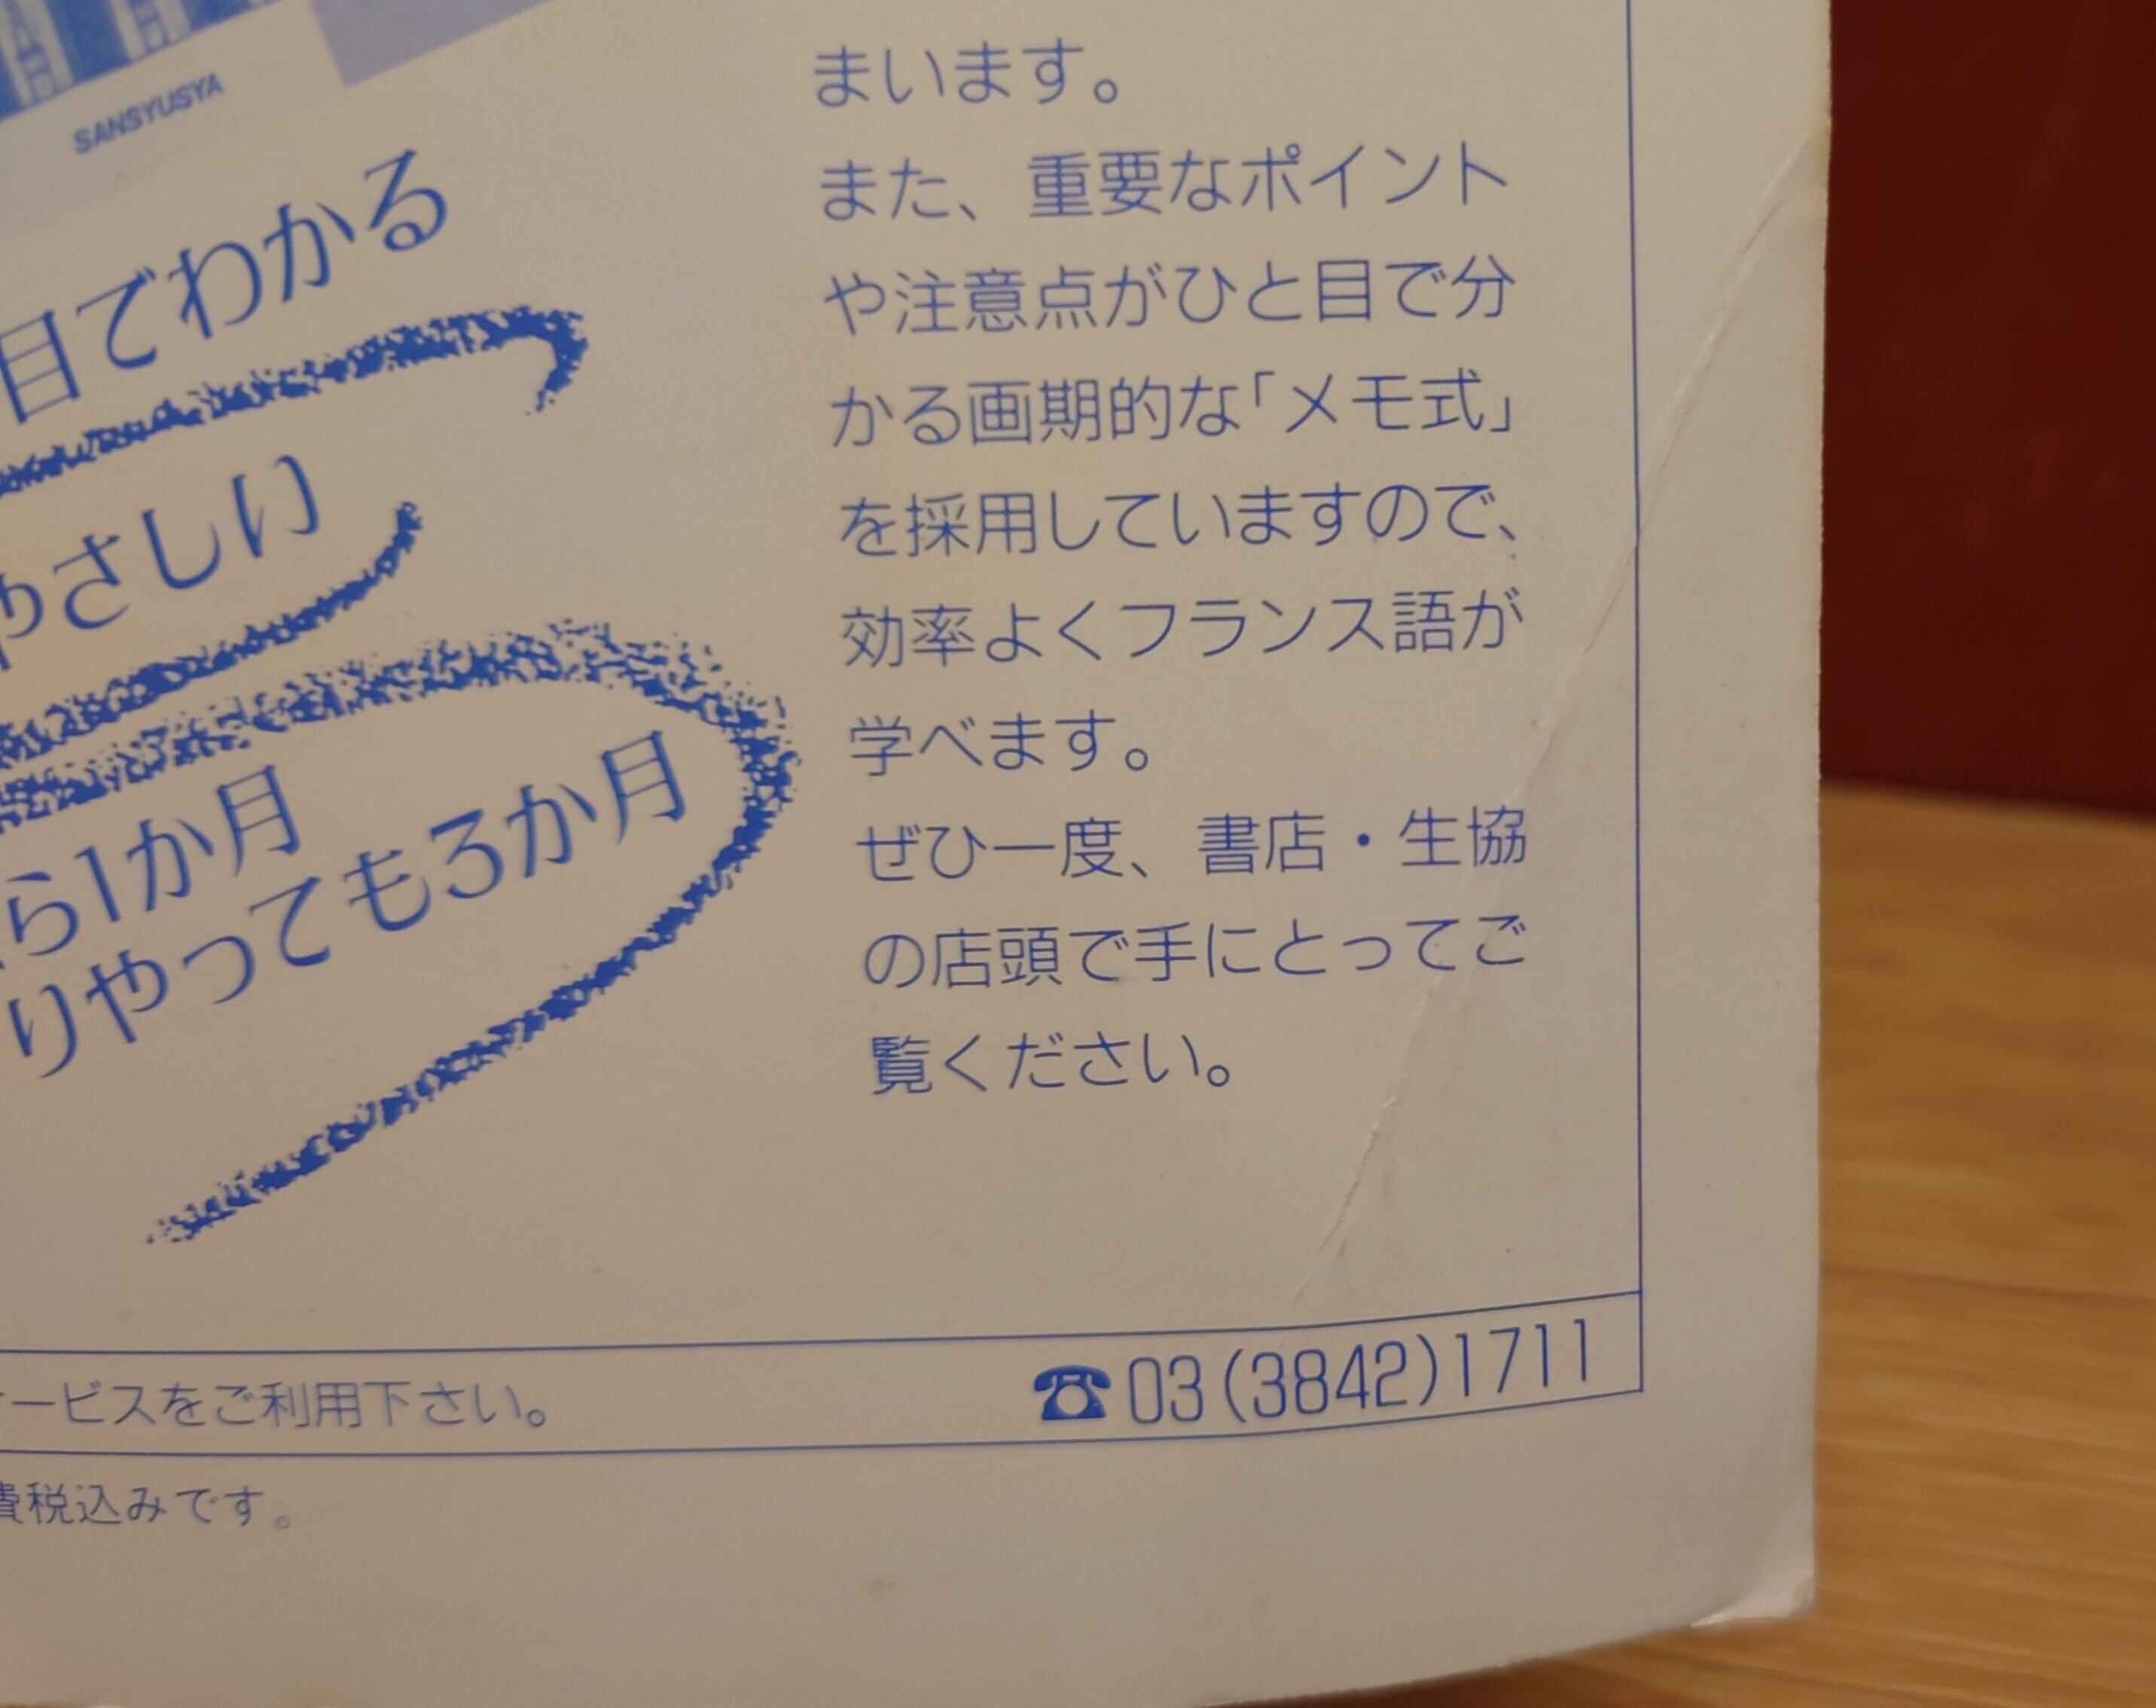 SANSYUSYA
目でわかる
やさしい
ら1か月
りやっても3か月
まいます。
また、重要なポイント
や注意点がひと目で分
かる画期的な「メモ式」
を採用していますので、
効率よくフランス語が
学べます。
ぜひ一度、書店・生協
の店頭で手にとってご
覧ください。
ービスをご利用下さい。
☎03(3842)1711
費税込みです。